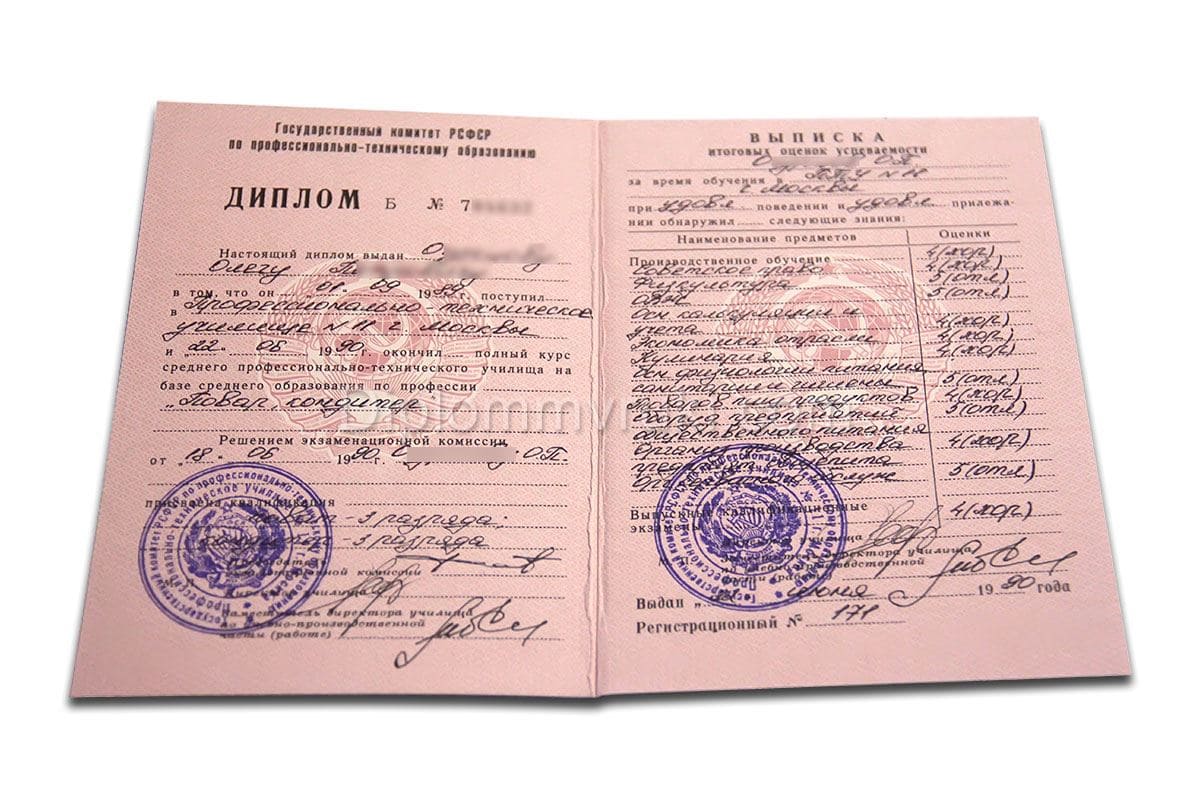 Государственный комитет РСФСР
по профессионально-техническому образованию
ДИПЛОМ Б № 7
Настоящий диплом выдан О
Олегу П
в том, что он 01 09 19 г. поступил
в Профессионально-техническое
училище N 11 г Москвы
и „22" 06 1990 г. окончил полный курс
среднего профессионально-технического училища на
базе среднего образования по профессии
„Повар, кондитер
Решением экзаменационной комиссии
от „18" 06 1990 г. О О.П.
присвоена квалификация
повар - 3 разряда,
кондитер - 3 разряда
Председатель
экзаменационной комиссии
Директор училища
Заместитель директора училища
по учебно-производственной
части (работе)
ВЫПИСКА
итоговых оценок успеваемости
О О.П.
за время обучения в ПТУ N 11
г Москвы
при удовл поведении и удовл прилежа-
нии обнаружил следующие знания:
Наименование предметов Оценки
Производственное обучение 4(хор.)
Советское право 4(хор.)
Физкультура 5(отл.)
5(отл.)
Осн калькуляции и
учета 4(хор.)
Экономика отрасли 4(хор.)
Кулинария 4(хор.)
Осн физиологии питания
санитарии и гигиены 5(отл.)
Товаров пищ продуктов 4(хор.)
Оборуд предприятий 5(отл.)
общественного питания
Организ производства 4(хор.)
5(отл.)
Выпускные квалификационные
экзамены 4(хор.)
Директор училища
Заместитель директора училища
по учебно-производственной
части (работе)
Выдан „22" июня 1990 года
Регистрационный № 171